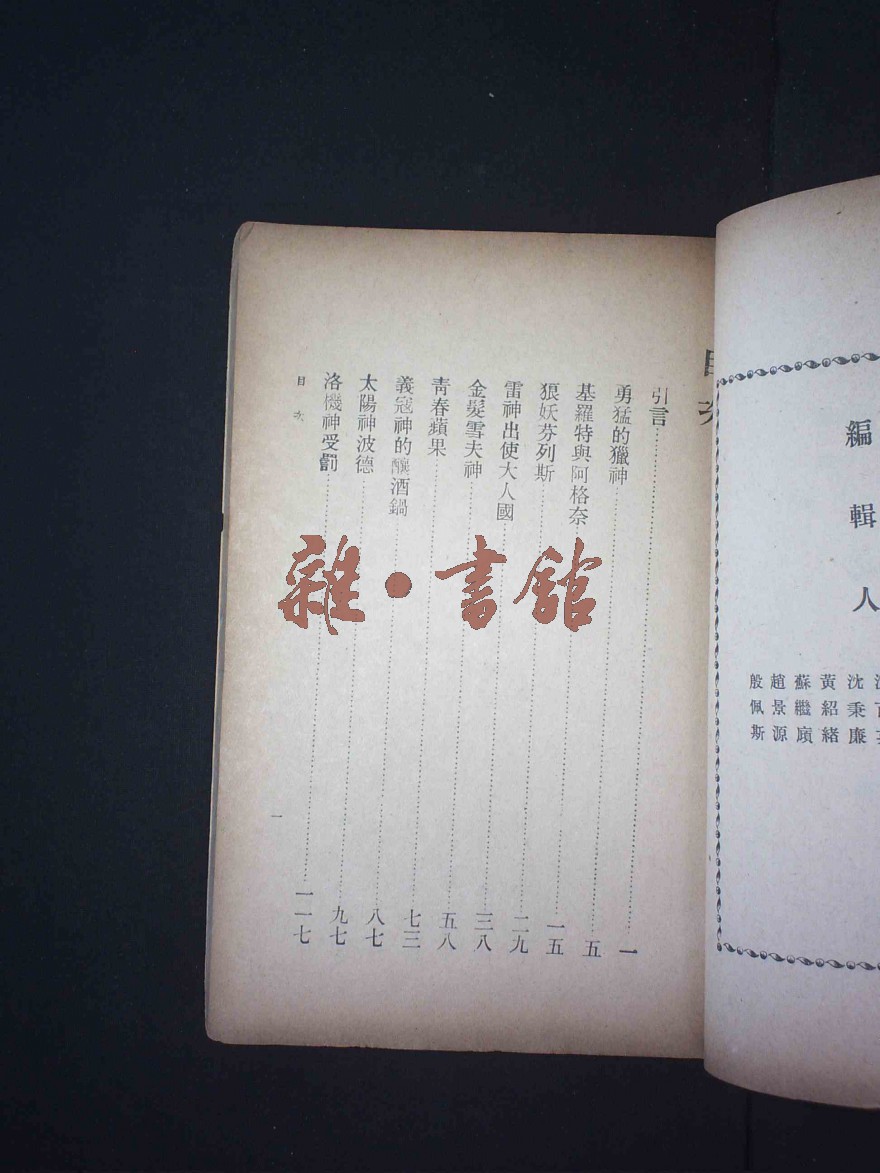 編輯人
沈秉廉
黃紹緒
蘇繼廎
趙景源
殷佩斯
目次
引言……一
勇猛的獵神……五
基羅特與阿格奈……一五
狼妖芬列斯……二九
雷神出使大人國……三八
金髮雪夫神……五八
青春蘋果……七三
義寇神的釀酒鍋……八七
太陽神波德……九七
洛機神受罰……一一七
目次
一
雜•書館